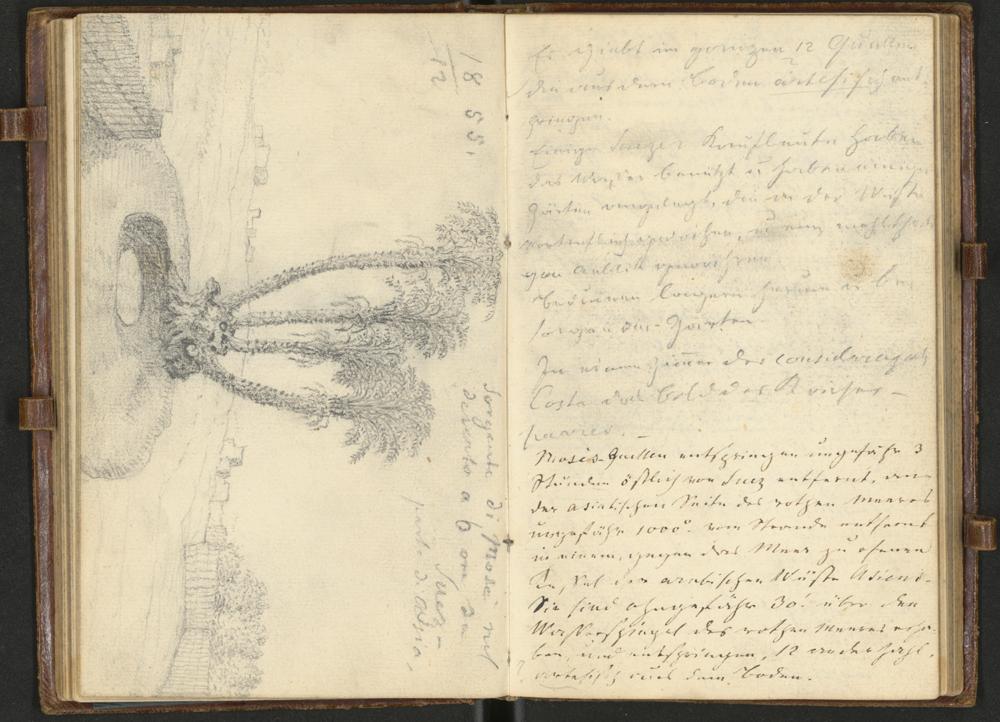 18 55.
12
Sorgente di Mosei nel
deserto a 6 ore da
Suez –
parte d'Asia.
Es giebt im ganzen 12 Quellen
die aus dem Boden artesisch ent-
springen.
Einige Suezer Kaufleute haben
das Wasser benützt u haben einige
Gärten angelegt, die in der Wüste
von Anblick
Beduinen lagern herum u be-
sorgen den Garten
In einem Zimmer des
Costa das Bild des Kaiser-
paares. –
Moses-Quellen entspringen ungefähr 3
Stunden östlich von Suez entfernt, an
der asiatischen Seite des rothen Meeres
ungefähr 1000° vom Strande entfernt
in einem, gegen das Meer zu ofenen
der arabischen Wüste Asiens.
Sie sind ohngefähr 30' über den
Wasserspiegel des rothen Meeres erha-
ben, und entspringen, 12 an der Zahl,
artesisch aus dem Boden.